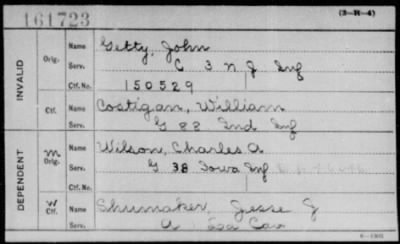 161723 (3-H-4)
INVALID
Orig. Name Getty, John
Serv. C 3 N J Inf
Ctf. No. 150529
Ctf. Name Costigan, William
Serv. G 88 Ind Inf
DEPENDENT
M Orig. Name Wilson, Charles A
Serv. G 38 Iowa Inf
W Ctf. Name Shumaker, Jesse J
Serv.